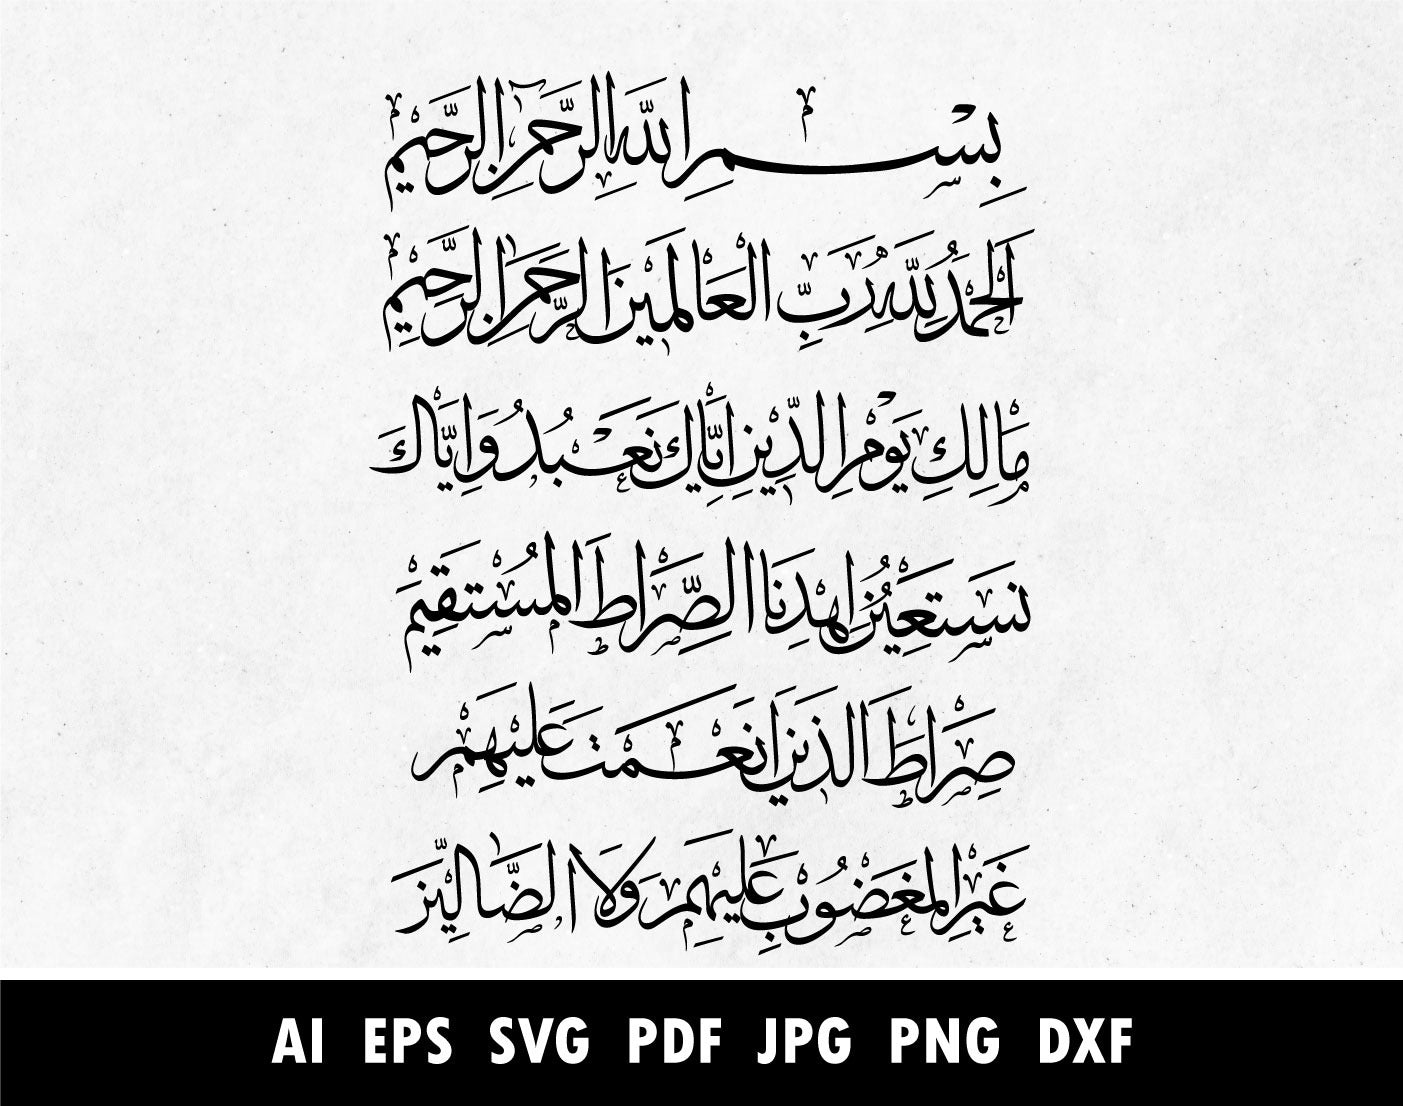 بِسْمِ اللَّهِ الرَّحْمٰنِ الرَّحِيمِ
الْحَمْدُ لِلَّهِ رَبِّ الْعَالَمِينَ الرَّحْمٰنِ الرَّحِيمِ
مَالِكِ يَوْمِ الدِّينِ إِيَّاكَ نَعْبُدُ وَإِيَّاكَ
نَسْتَعِينُ اهْدِنَا الصِّرَاطَ الْمُسْتَقِيمَ
صِرَاطَ الَّذِينَ أَنْعَمْتَ عَلَيْهِمْ
غَيْرِ الْمَغْضُوبِ عَلَيْهِمْ وَلَا الضَّالِّينَ
AI EPS SVG PDF JPG PNG DXF